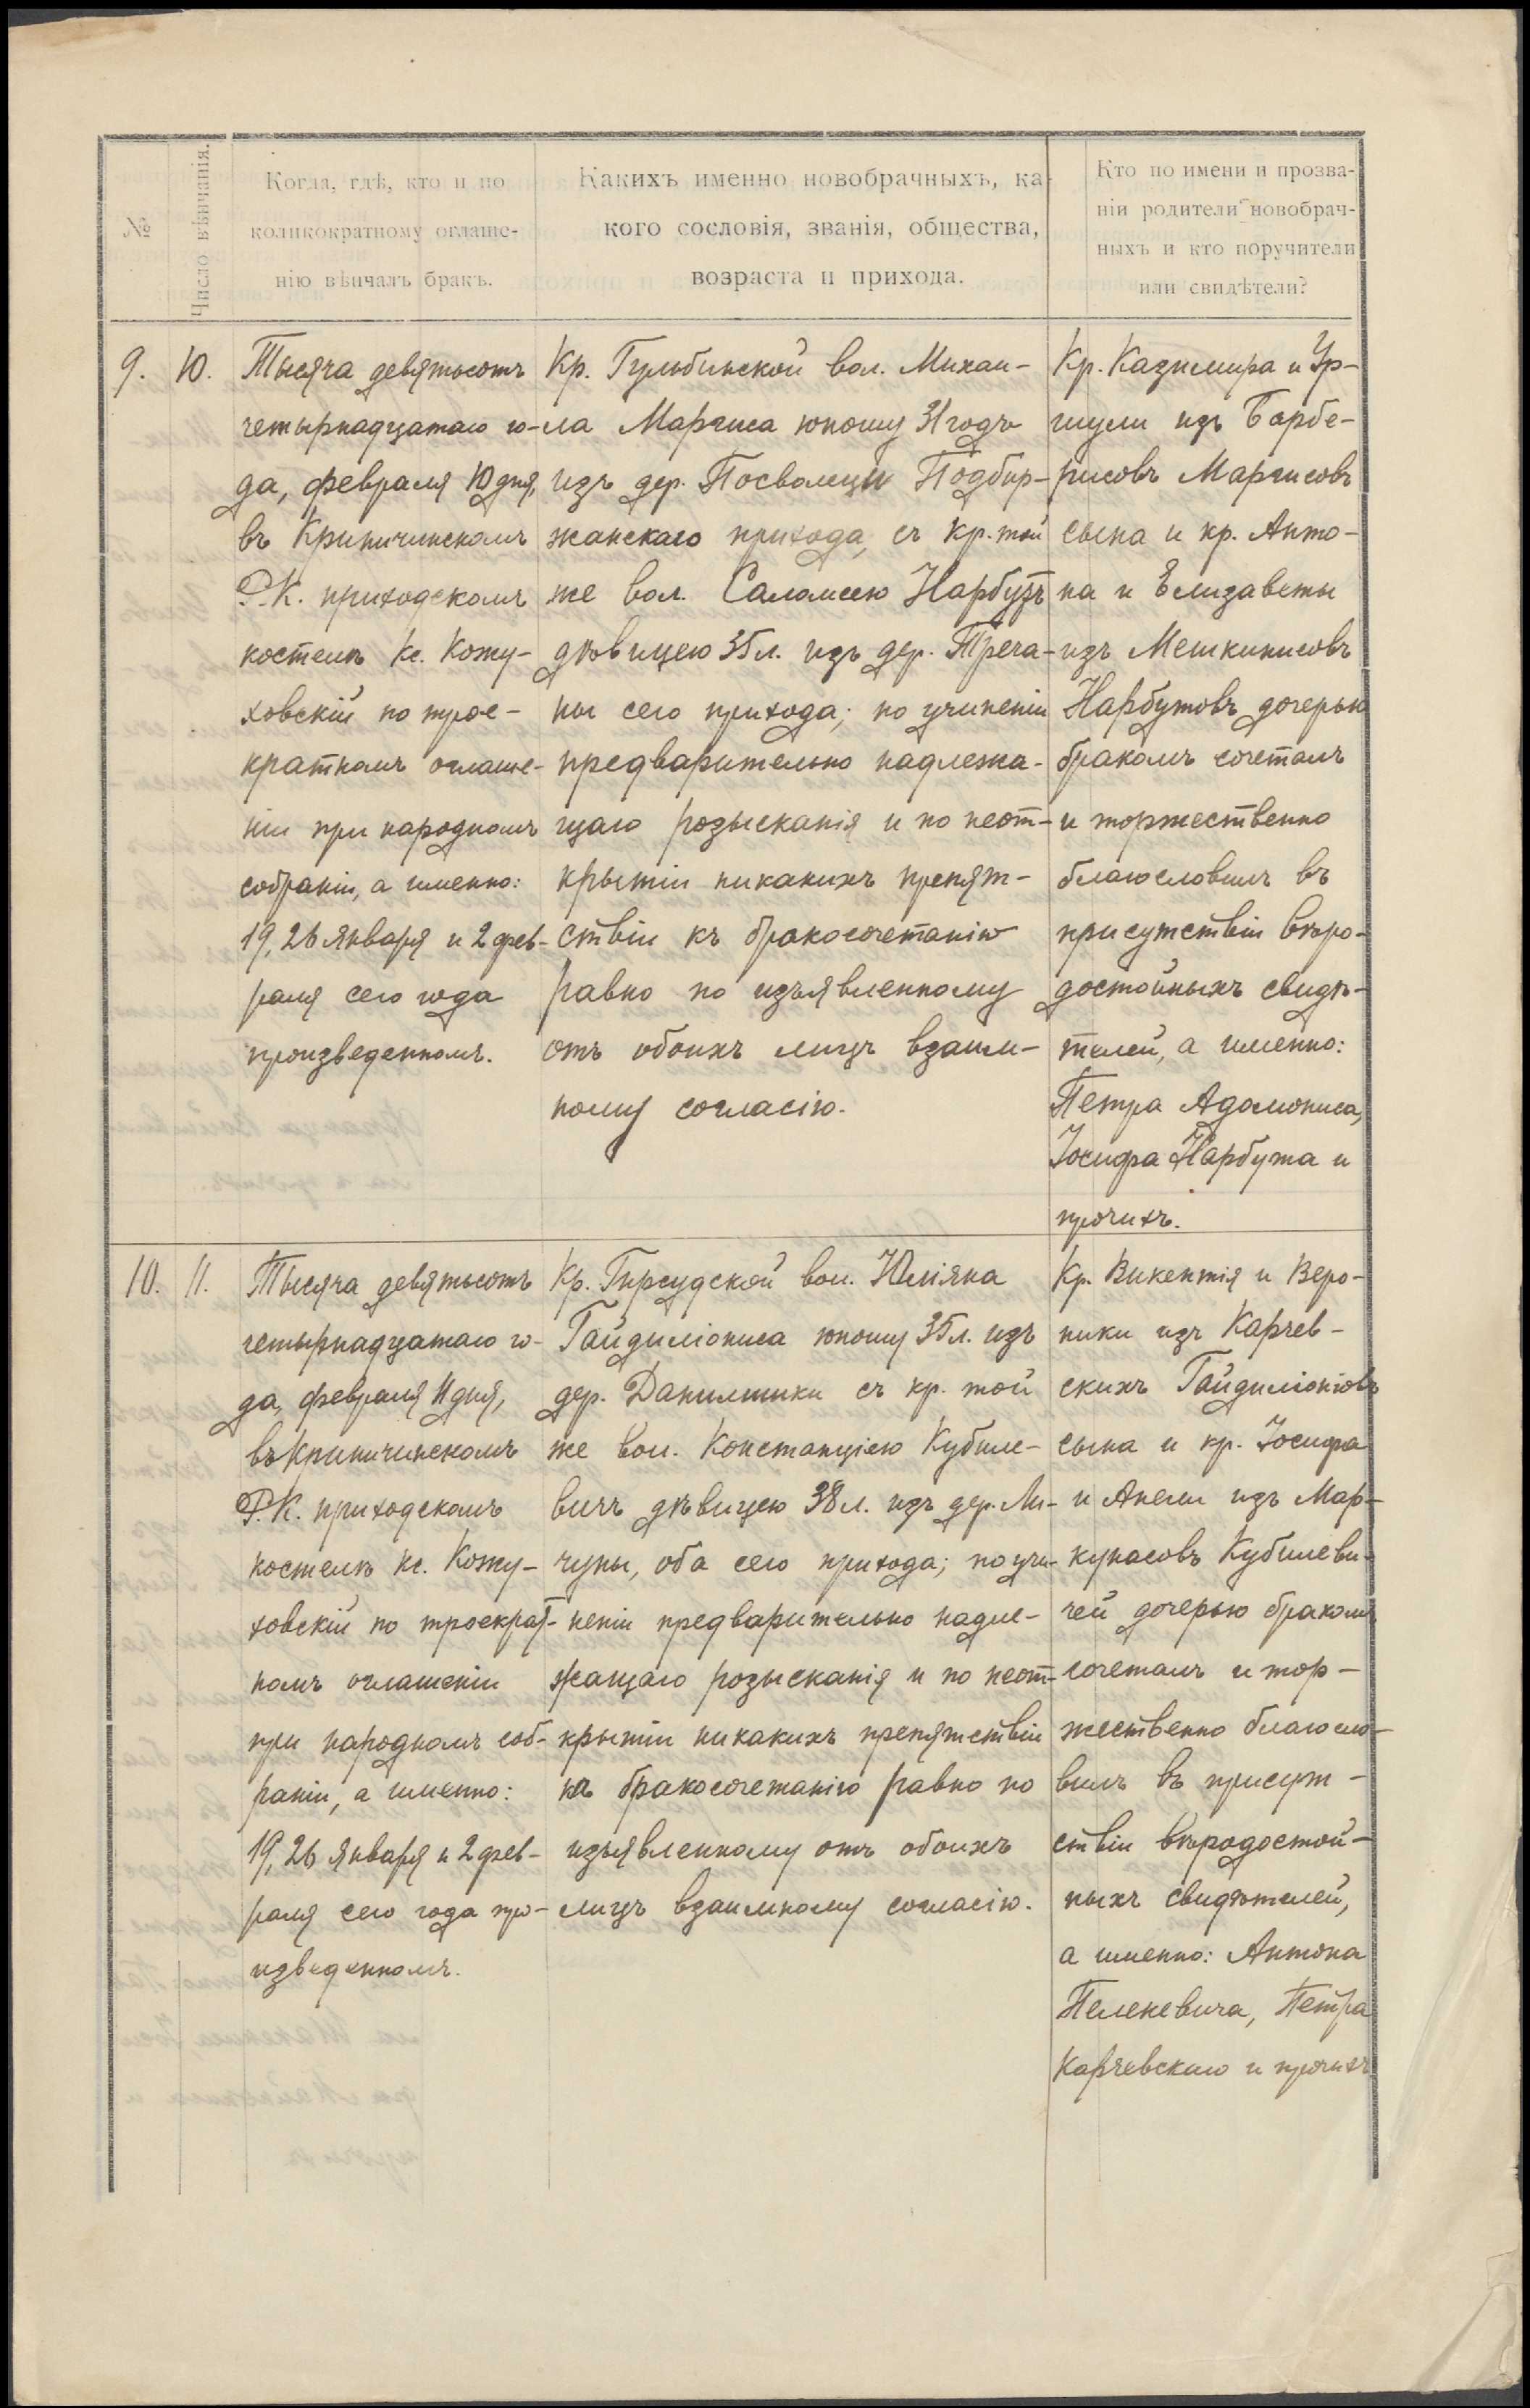 №
Число вѣнчанія.
Когда, гдѣ, кто и по
коликократному оглаше-
нію вѣнчалъ бракъ.
Какихъ именно новобрачныхъ, ка-
кого сословія, званія, общества,
возраста и прихода.
Кто по имени и прозва-
ніи родители новобрач-
ныхъ и кто поручители
или свидѣтели?
9.
10.
Тысяча девятьсотъ
четырнадцатаго го-
да, февраля 10 дня,
въ Криничинскомъ
Р.К. приходскомъ
костелѣ Кс. Кожу-
ховскій по трое-
кратномъ оглаше-
ніи при народномъ
собраніи, а именно:
19, 26 января и 2 фев-
раля сего года
произведенномъ.
Кр. Гульбинской вол. Михаи-
ла Маргиса юношу 31 годъ
изъ дер. Посвалецы Подбир-
жанскаго прихода, съ кр. той
же вол. Саломеею Нарбутъ
дѣвицею 35 л. изъ дер. Треча-
ны сего прихода; по учиненіи
предварительно надлежа-
щаго розысканія и по неот-
крытіи никакихъ препят-
ствій къ бракосочетанію
равно по изъявленному
отъ обоихъ лицъ взаим-
ному согласію.
Кр. Казимира и Ур-
шули изъ Барбе-
рисовъ Маргисовъ
сына и кр. Анто-
на и Елизаветы
изъ Мешкинисовъ
Нарбутовъ дочерью
бракомъ сочеталъ
и торжественно
благословилъ въ
присутствіи вѣро-
достойныхъ свидѣ-
телей, а именно:
Петра Адамониса,
Іосифа Нарбута и
прочихъ.
10.
11.
Тысяча девятьсотъ
четырнадцатаго го-
да, февраля 11 дня,
въ Криничинскомъ
Р.К. приходскомъ
костелѣ Кс. Кожу-
ховскій по троекрат-
номъ оглашеніи
при народномъ соб-
раніи, а именно:
19, 26 января и 2 фев-
раля сего года про-
изведенномъ.
Кр. Гирсудской вол. Юліяна
Гайдиліониса юношу 35 л. изъ
дер. Данилишки съ кр. той
же вол. Констанціею Кубиле-
вичъ дѣвицею 38 л. изъ дер. Ли-
чуны, оба сего прихода; по учи-
неніи предварительно надле-
жащаго розысканія и по неот-
крытіи никакихъ препятствій
къ бракосочетанію равно по
изъявленному отъ обоихъ
лицъ взаимному согласію.
Кр. Викентія и Веро-
ники изъ Карчев-
скихъ Гайдиліонiовъ
сына и кр. Іосифа
и Анели изъ Мар-
кунасовъ Кубилеви-
чей дочерью бракомъ
сочеталъ и тор-
жественно благосло-
вилъ въ присут-
ствіи вѣродостой-
ныхъ свидѣтелей,
а именно: Антона
Пеленевича, Петра
Карчевскаго и прочихъ